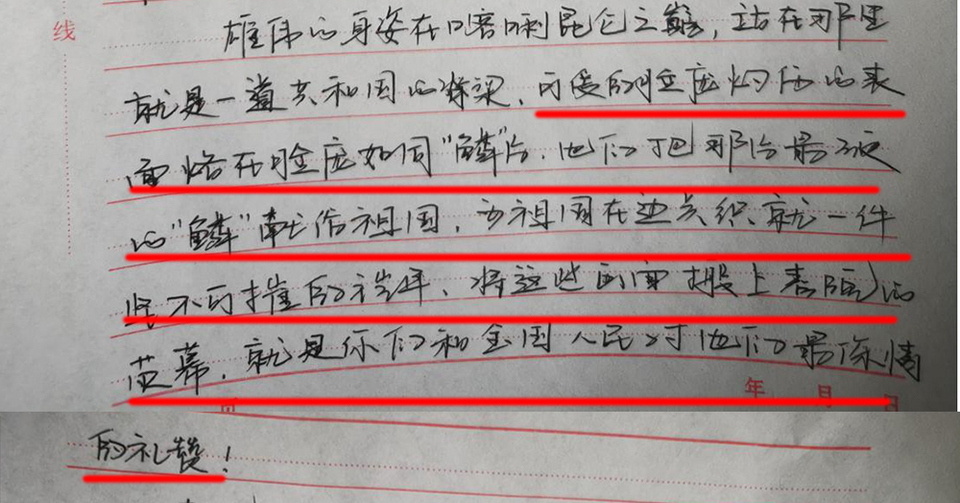 线
雄伟的身姿在喀喇昆仑之巅，站在那里
就是一道共和国的脊梁，可爱的哈
面烙在 如同“鳞”片，他们把那份最硬
的“鳞”献给祖国，为祖国在边关织就一件
坚不可摧的铠甲，将这些画面搬上影院的
荧幕，就是你们和全国人民对他们最深情
年 月 日
的礼赞！